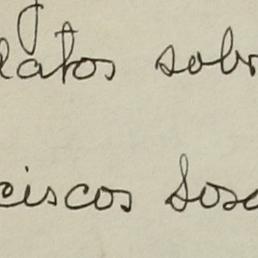 latos sobr
ciscos Sosa